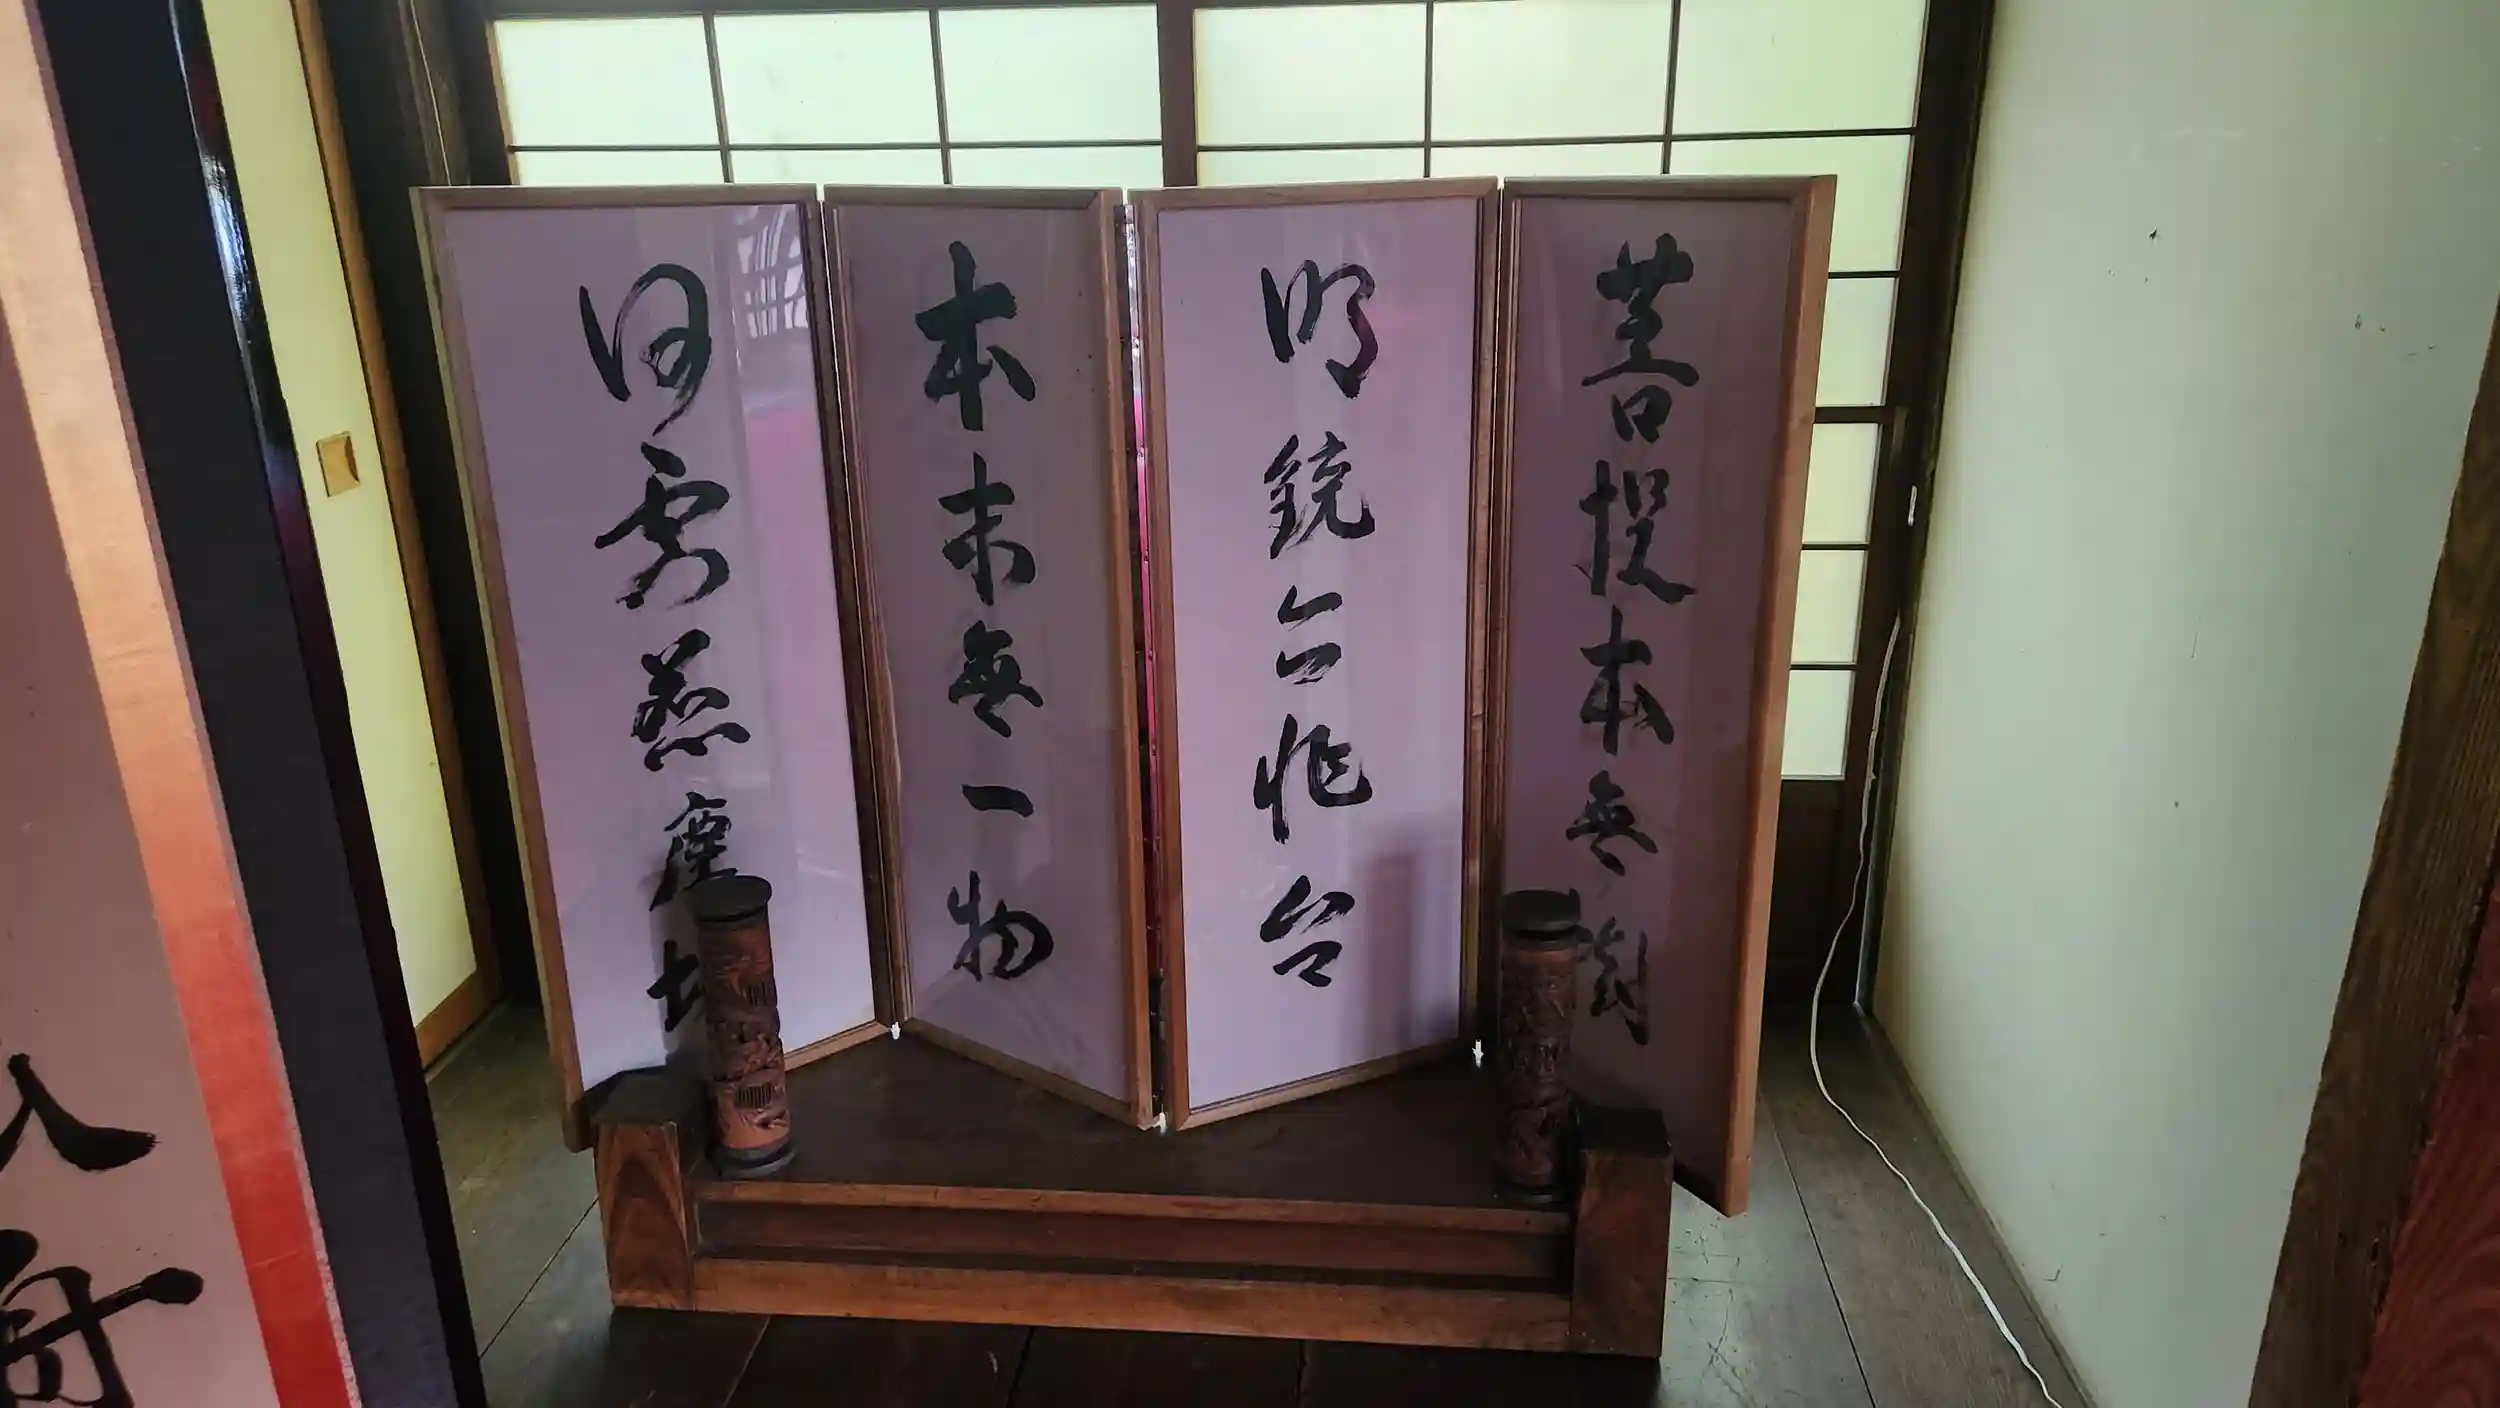 菩提本無樹
明鏡亦非台
本来無一物
何處惹塵埃